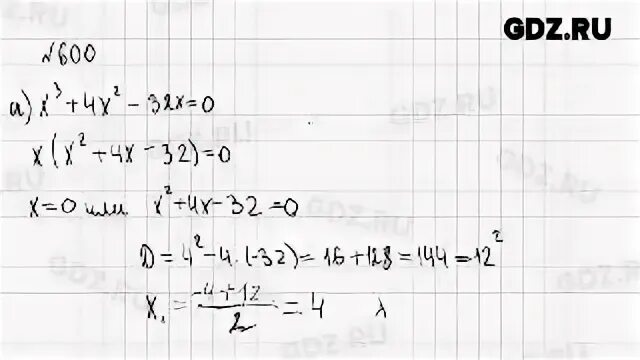 GDZ.RU
№600
а) x³ + 4x² - 32x = 0
x(x² + 4x - 32) = 0
x = 0 или x² + 4x - 32 = 0
D = 4² - 4·(-32) = 16 + 128 = 144 = 12²
x₁ = (-4+12)/2 = 4